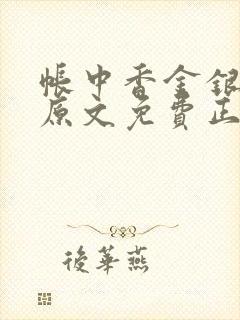 帳中香金銀
原文免費正
後華燕